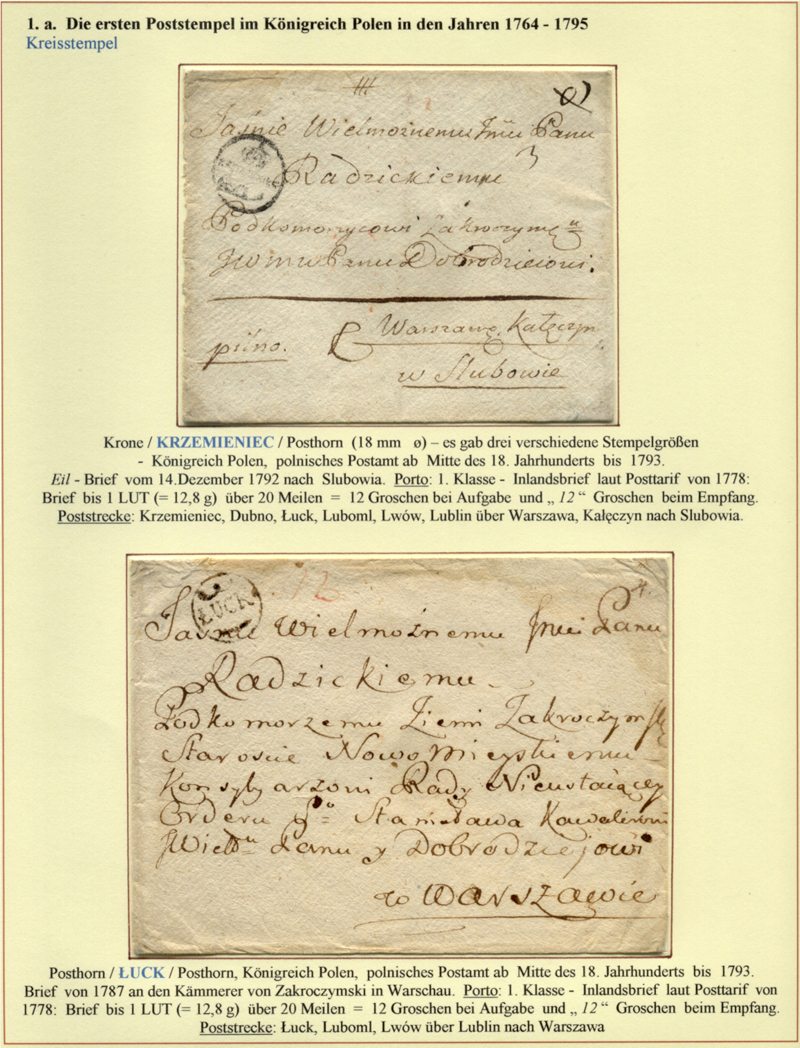 1. a. Die ersten Poststempel im Königreich Polen in den Jahren 1764 - 1795
Kreisstempel
Jaśnie Wielmożnemu Jmci Panu
Radzickiemu
Podkomorzycowi Zakroczyms
Panu Dobrodziejowi.
pilno.
Warszawę, Kałęczyn
w Slubowie
Krone / KRZEMIENIEC / Posthorn (18 mm ø) – es gab drei verschiedene Stempelgrößen
- Königreich Polen, polnisches Postamt ab Mitte des 18. Jahrhunderts bis 1793.
Eil - Brief vom 14.Dezember 1792 nach Slubowia. Porto: 1. Klasse - Inlandsbrief laut Posttarif von 1778:
Brief bis 1 LUT (= 12,8 g) über 20 Meilen = 12 Groschen bei Aufgabe und „ 12 “ Groschen beim Empfang.
Poststrecke: Krzemieniec, Dubno, Łuck, Luboml, Lwów, Lublin über Warszawa, Kalęczyn nach Slubowia.
12
ŁUCK
Jaśnie Wielmożnemu Jmci Panu
Radzickiemu
Podkomorzemu Ziemi Zakroczymski
Staroście Nowo Mieyskiemu
Konsyliarzowi Rady Nieustaiącey
Orderu Sº Stanisława Kawalerowi
Panu y Dobrodziejowi
w Warszawie
Posthorn / ŁUCK / Posthorn, Königreich Polen, polnisches Postamt ab Mitte des 18. Jahrhunderts bis 1793.
Brief von 1787 an den Kämmerer von Zakroczymski in Warschau. Porto: 1. Klasse - Inlandsbrief laut Posttarif von
1778: Brief bis 1 LUT (= 12,8 g) über 20 Meilen = 12 Groschen bei Aufgabe und „ 12 “ Groschen beim Empfang.
Poststrecke: Łuck, Luboml, Lwów über Lublin nach Warszawa